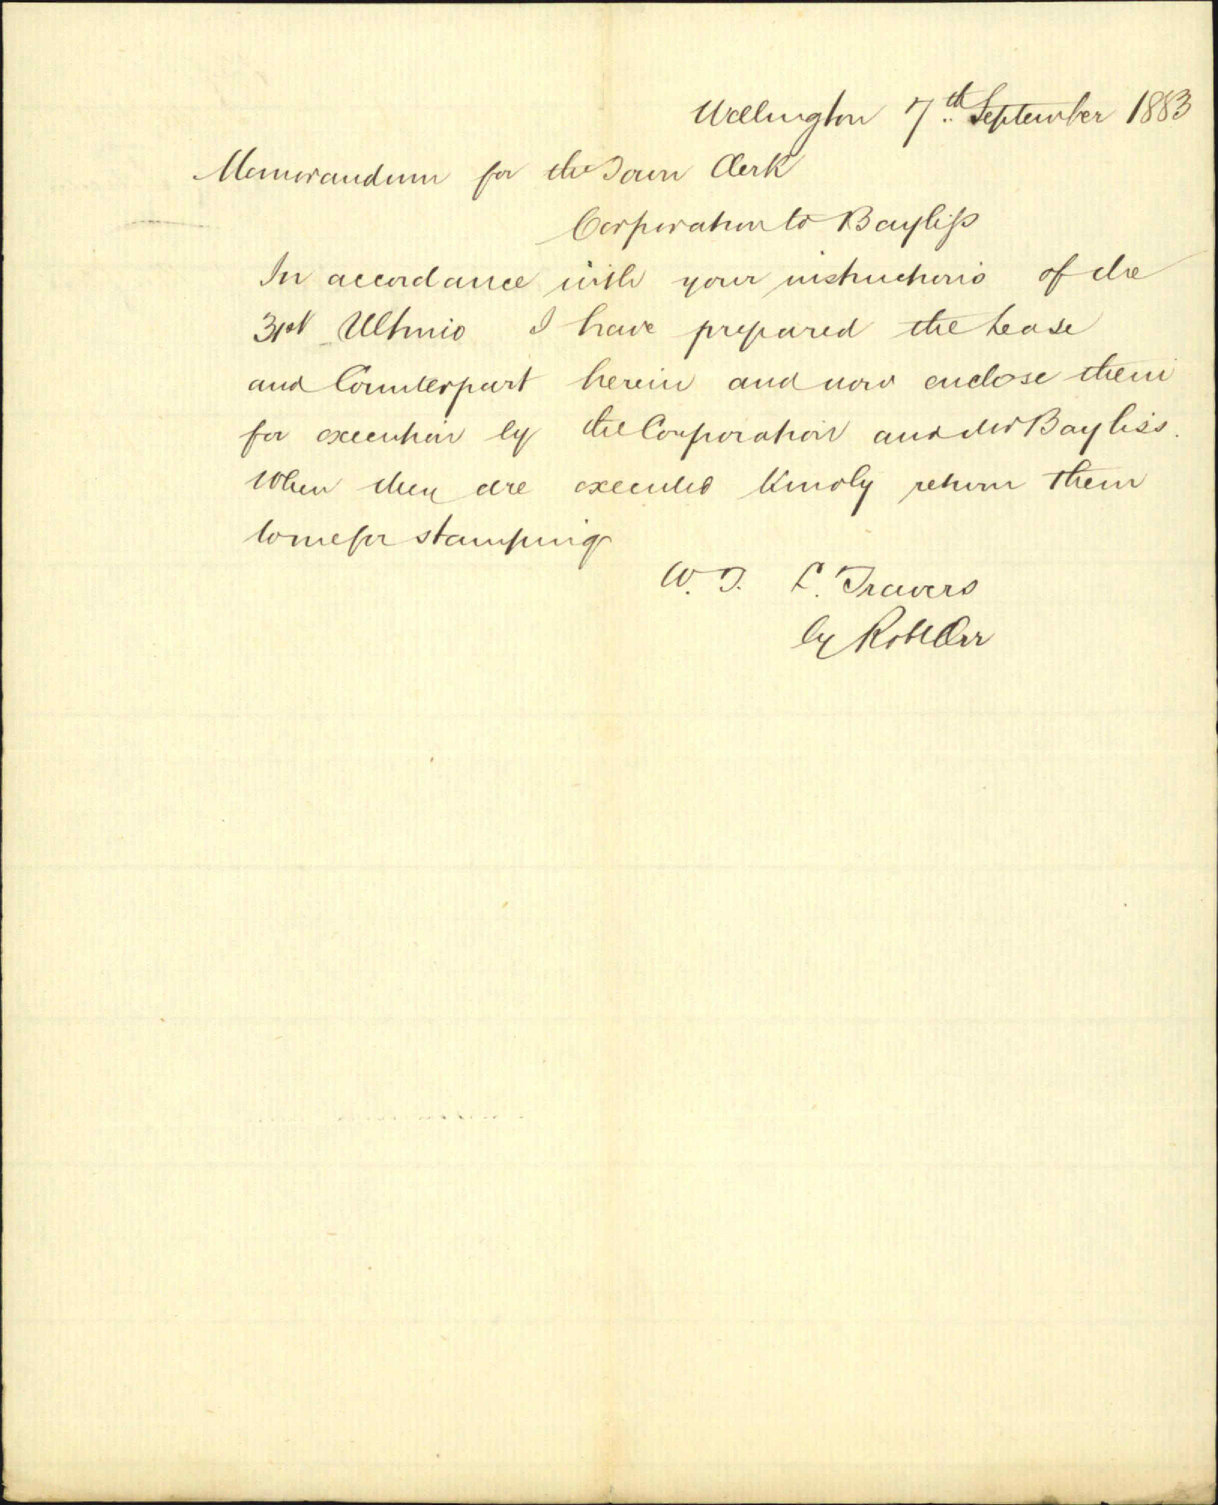 Wellington 7th September 1883
Memorandum for the Town Clerk
Corporation to Bayliss
In accordance with your instructions of the
31st Ultimo I have prepared the Lease
and Counterpart herein and now enclose them
for execution by the Corporation and Mr Bayliss.
When they are executed kindly return them
to me for stamping
W. T. L. Travers
by Robt Orr